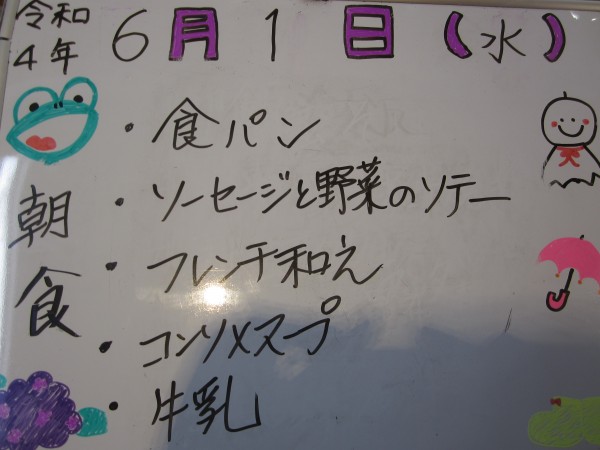 令和
4年
6月1日(水)
朝食
・食パン
・ソーセージと野菜のソテー
・フレンチ和え
・コンソメスープ
・牛乳